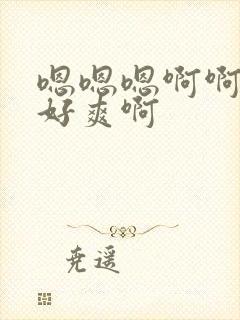 嗯嗯嗯啊啊
好爽啊
尧遥